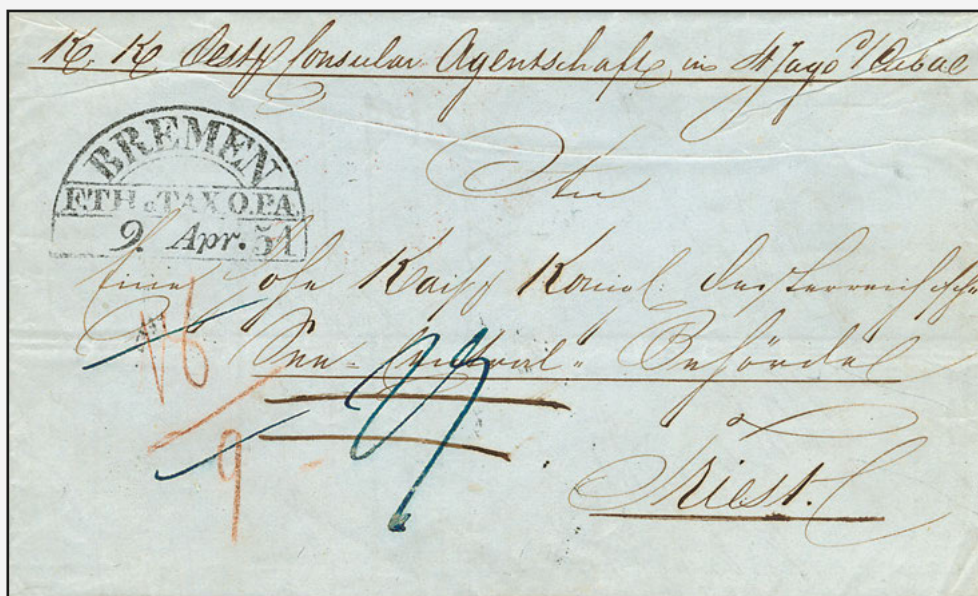 K. K. Oestr Consular Agentschaft in St Jago d/ Cuba
BREMEN
F.TH &.TAX O.P.A.
9. Apr. 51
An
Eine hohe Kais Königl. Oesterreichische
See-Central-Behörde
Triest.
9